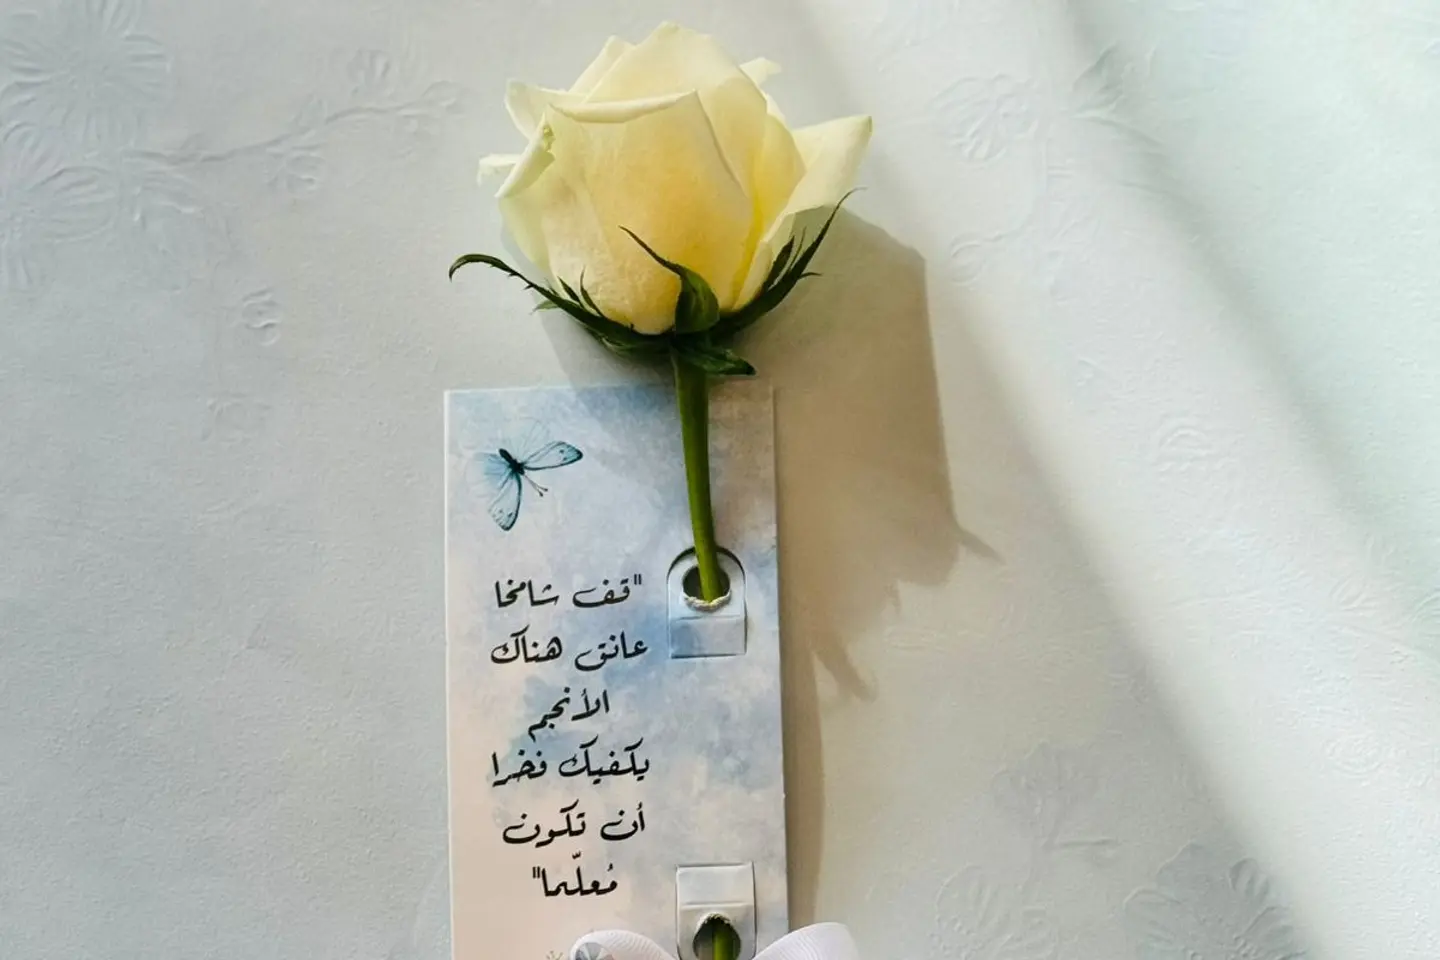 "قف شامخا
عانق هناك
الأنجم
يكفيك فخرا
أن تكون
مُعلّما"